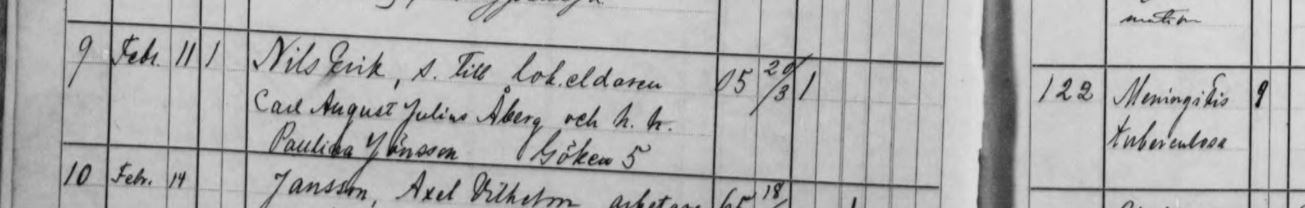 mation
9 Febr. 11 1 Nils Erik, s. till lok.eldaren 05 20/3 1 122 Meningitis 9
Carl August Julius Åberg och h. h. tuberculosa
Paulina Jönsson Göken 5
10 Febr. 14 Jansson, Axel Vilhelm arbetare 65 18